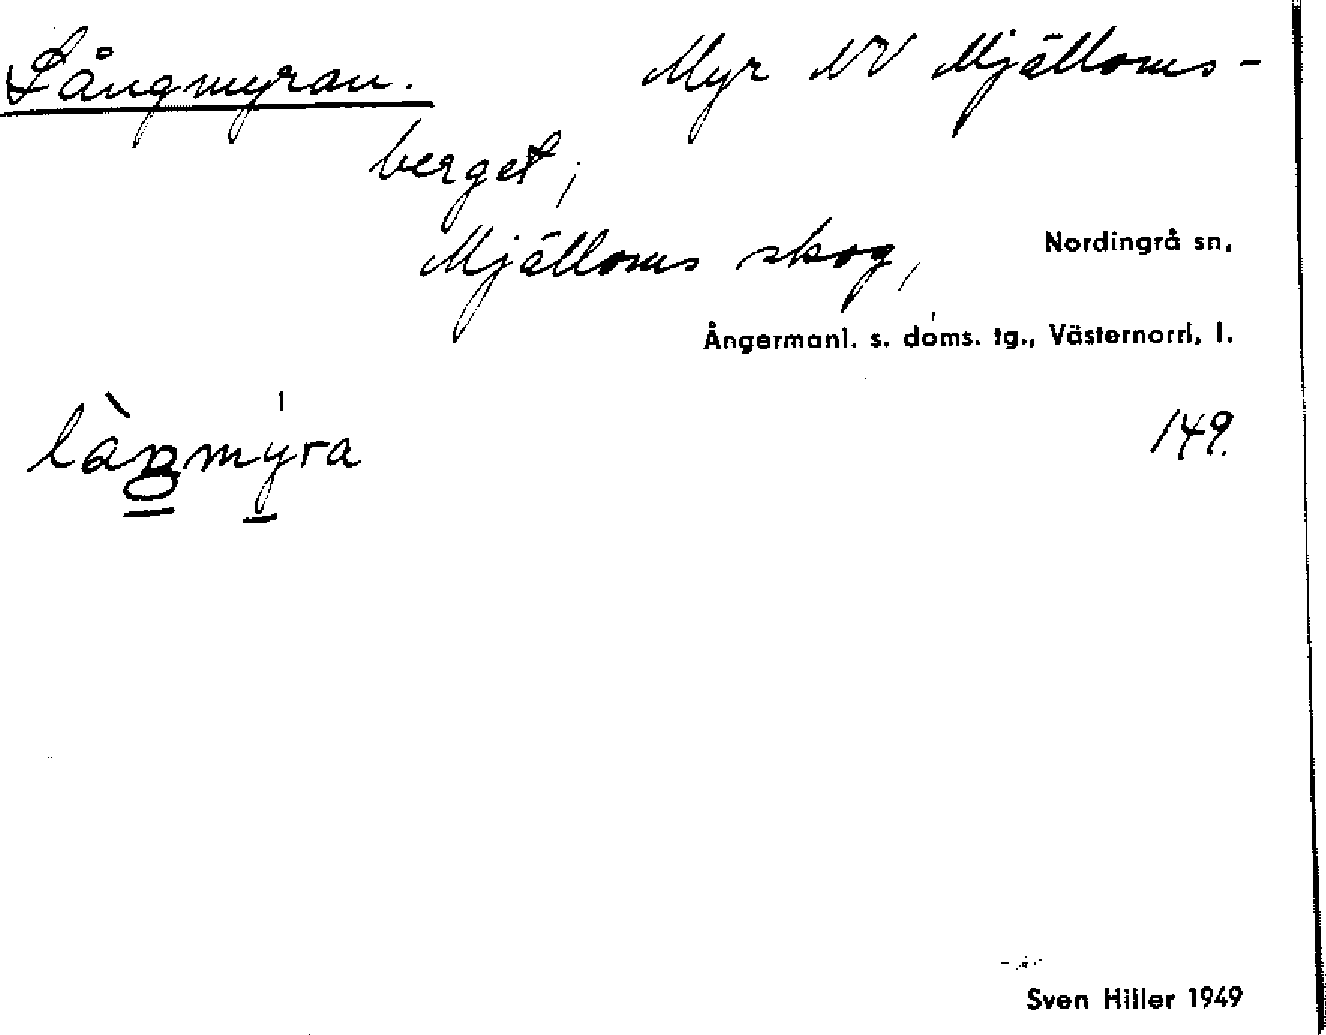 Långmyran. Myr NV Mjälloms-
berget,
Mjälloms skog, Nordingrå sn,
Ångermanl. s. doms. tg., Västernorrl. l.
149.
Sven Hiller 1949